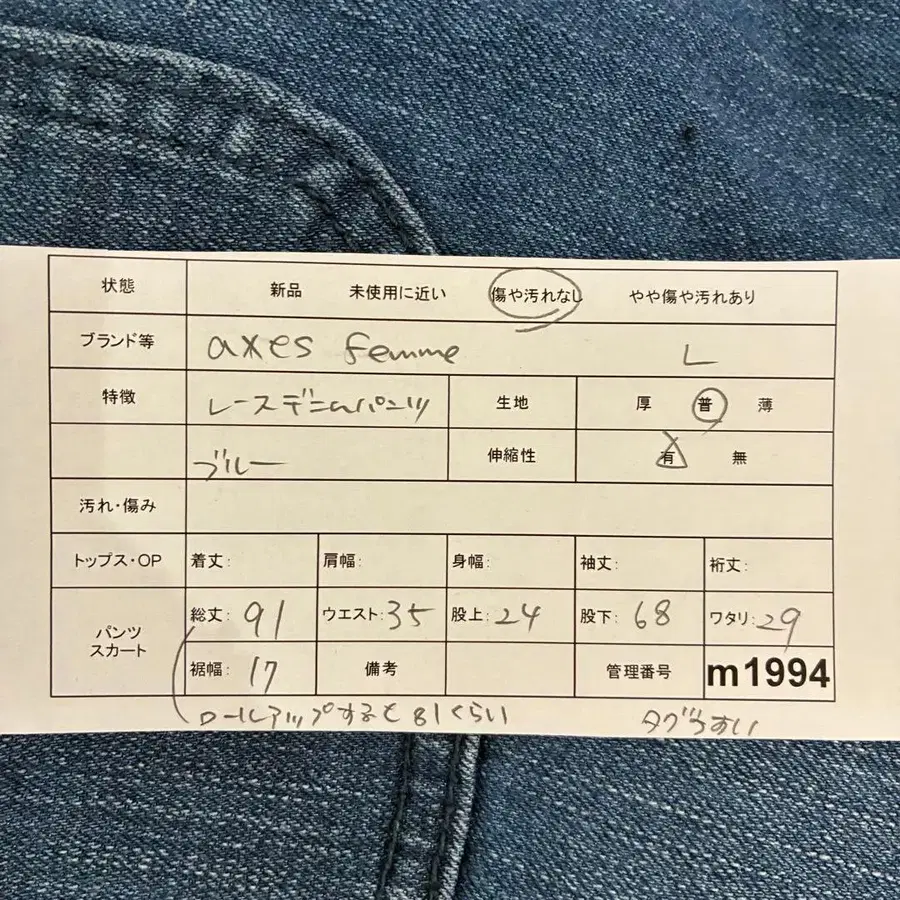 状態 新品 未使用に近い 傷や汚れなし やや傷や汚れあり
ブランド等 axes femme L
特徴 レースデニムパンツ 生地 厚 普 薄
ブルー 伸縮性 有 無
汚れ・傷み
トップス・OP 着丈: 肩幅: 身幅: 袖丈: 裄丈:
パンツ スカート 総丈: 91 ウエスト: 35 股上: 24 股下: 68 ワタリ: 29
裾幅: 17 備考 管理番号 m1994
ロールアップすると81くらい タグうすい